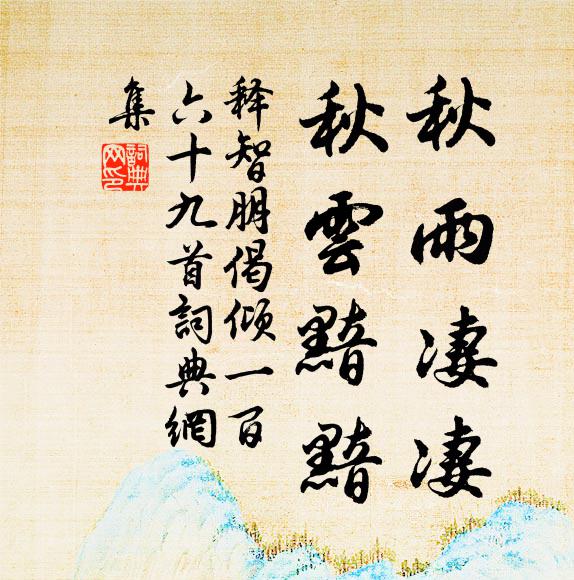 秋雨淒淒
秋雲黯黯
释智朋偈傾一百
六十九首詞典網
集
詞典
网印